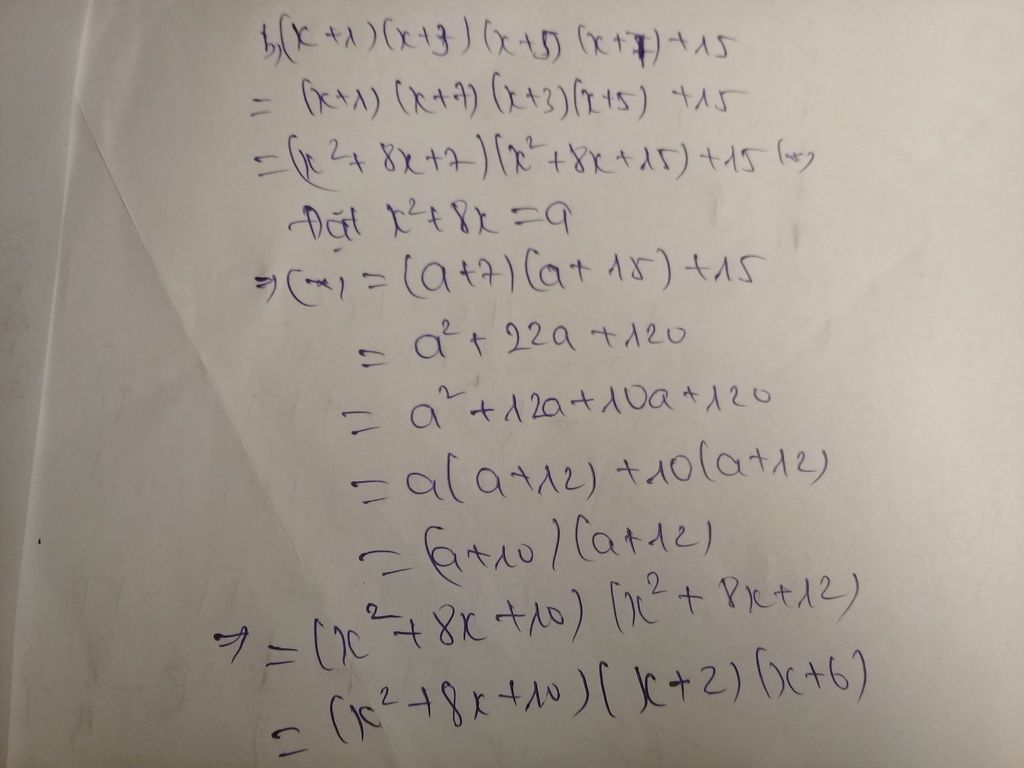 b,(x+1)(x+3)(x+5)(x+7)+15
= (x+1)(x+7)(x+3)(x+5) +15
=(x²+8x+7)(x²+8x+15)+15 (*)
Đặt x²+8x=a
⇒(*) = (a+7)(a+15)+15
= a²+22a+120
= a²+12a+10a+120
= a(a+12)+10(a+12)
= (a+10)(a+12)
⇒ = (x²+8x+10)(x²+8x+12)
= (x²+8x+10)(x+2)(x+6)